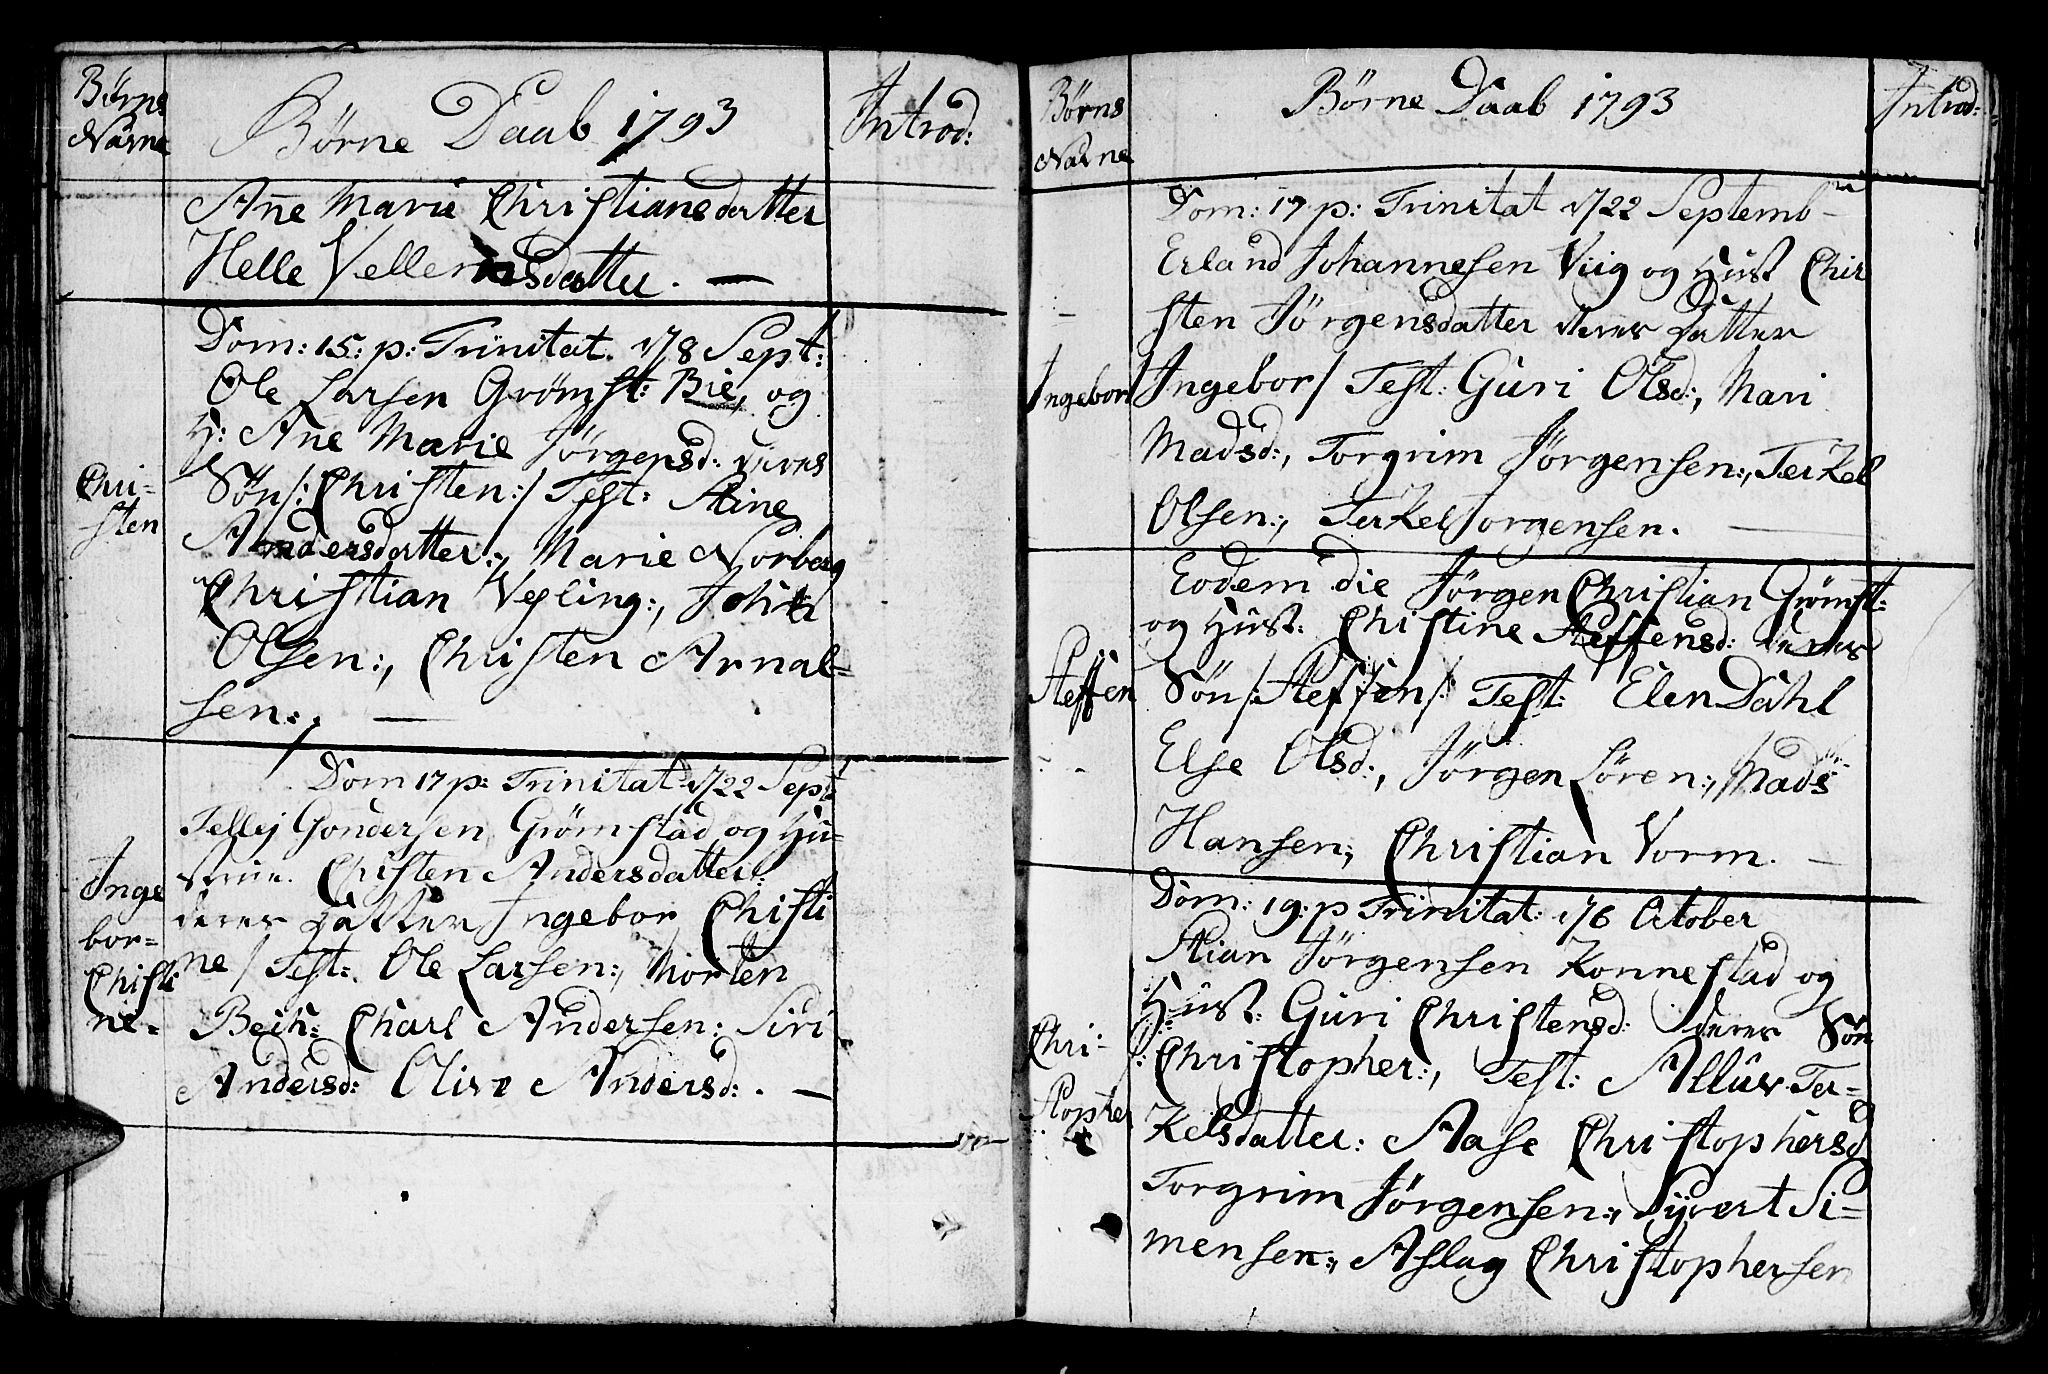 Börne Navne
Börne Daab 1793
Introd:
Añe Marie Christianedatter
Helle Vellemesdatter. —
Dom: 15: p: Trinitat. 1/8 Sept:
Ole Larsen Grömst: Bie, og
H: Ane Marie Jörgensd: deres
Chri-
sten
Sön /: Christen :/ Test: Stine
Andersdatter:, Marie Norberg
Christian Vesling:, John
Olsen:, Christen Arnal-
sen:, —
Dom 17 p: Trinitat 1/22 Sept
Tellej Gondersen Grömstad og Hu-
strue. Christen Andersdatter:
Inge
bor-
Christi
ne-
deres Datter Ingebor Christi
ne / Test: Ole Larsen:, Morten
Bech: Charl Andersen: Siri
Andersd: Olive Andersd: . —
Börns Navne
Börne Daab 1793
Introd:
Dom: 17 p: Trinitat 1/22 Septemb
Erland Johannesen Viig og Hust Chir
sten Jörgensdatter deres Datter
Ingebor
Ingebor / Test: Guri Olsd:, Mari
Madsd:, Torgrim Jörgensen:, Terkel
Olsen:, Terkel Jorgensen. —
Eodem die Jörgen Christian Grömst:
og Hust: Christine Steffensd: deres
Steffen
Sön /: Steffen / Test: Elen Dahl
Else Olsd:, Jörgen Sören:, Mads
Hansen:, Christian Vorm. —
Dom: 19: p Trinitat: 1/6 October
Stian Jörgensen Konnestad og
Hust: Guri Christensd: deres Sön
Chri-
stopher
/: Christopher:, Test: Allur Ter-
Kelsdatter: Aase Christophersd
Torgrim Jörgensen:, Syvert Si-
mensen:, Aslag Christophersen